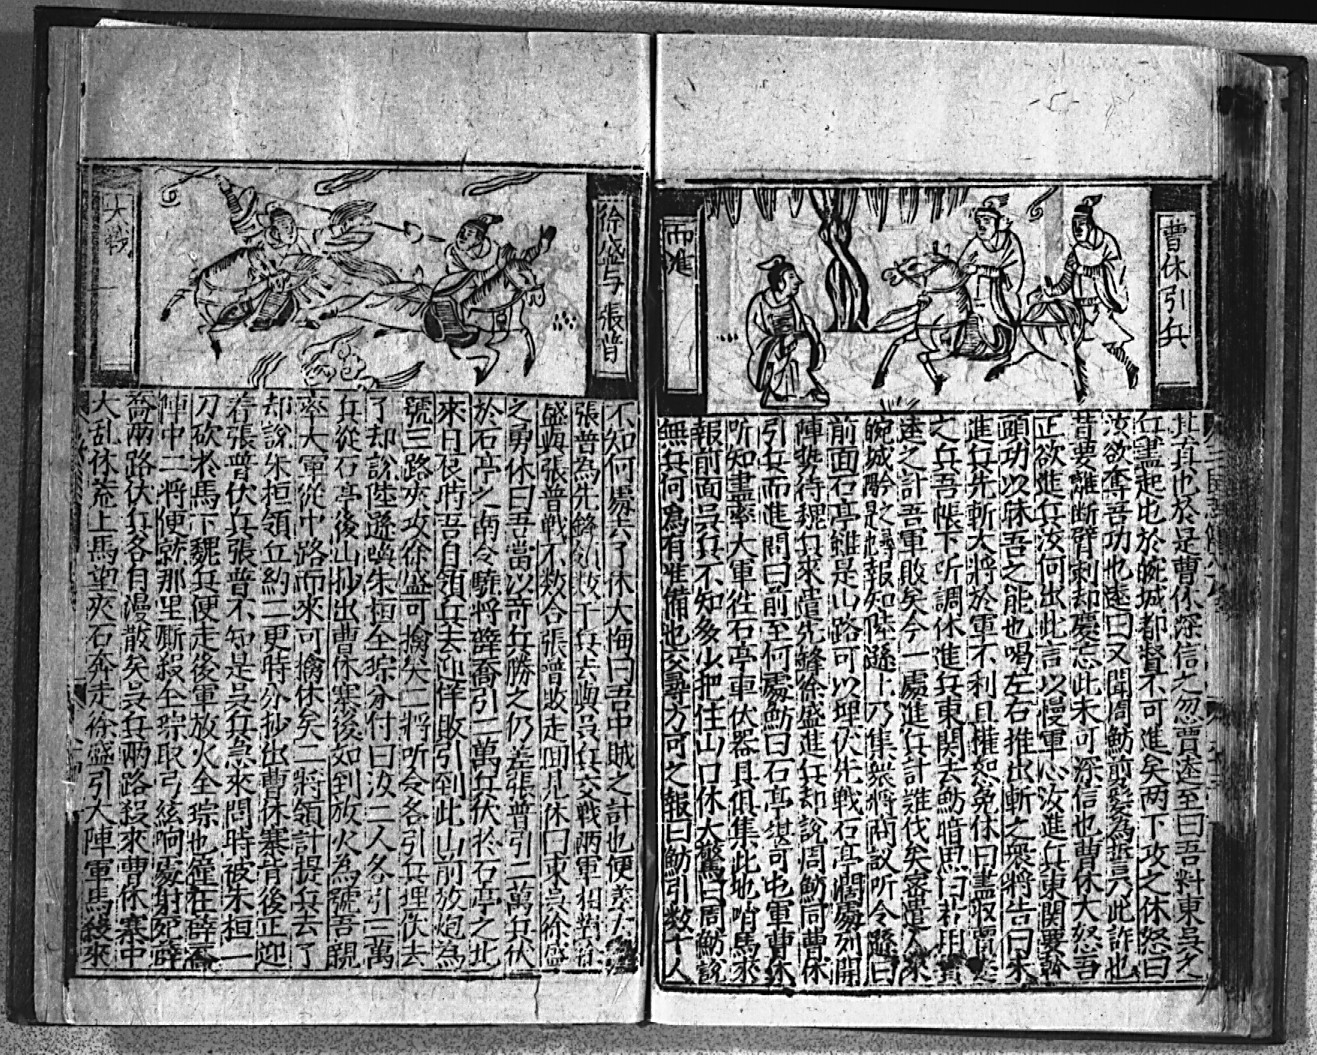 曹休引兵
而進
其真也於是曹休深信之忽賈逵至曰吾料東吳之
兵盡起屯於皖城都督不可進矣两下攻之休怒曰
汝欲奪吾功也逵曰又聞周魴前髮為誓只此詐也
昔要離断臂刺却慶忌此未可深信也曹休大怒吾
正欲進兵汝何出此言以慢軍心汝進兵東関要幹
頭功以昧吾之能也喝左右推出斬之衆將告曰未
進兵先斬大將於軍不利且權恕免休曰盡收賈逵
之兵吾帳下听調休進兵東関去魴暗思曰若用賈
逵之計吾軍敗矣今一處進兵計誰伐矣密遣人來
皖城報知陸遜上乃集衆將商議所令遜曰
前面石亭雖是山路可以埋伏先戰石亭濶處列開
陣勢待魏兵來遣先鋒徐盛進兵却說周魴同曹休
引兵而進問曰前至何處魴曰石亭堪可屯軍曹休
听知盡率大軍往石亭車伏器具俱集此地哨馬來
報前面吳兵不知多少把住山口休大驚曰周魴說
無兵何為有准備也交尋方可之報曰魴引数十人
徐盛与張普
大戰
不知何處去了休大悔曰吾中賊之計也便差大
張普為先鋒引数千兵去與吳兵交戰兩軍相對徐
盛與張普戰不数合張普敗走回見休曰東吳徐盛
之勇休曰吾當以奇兵勝之仍差張普引二萬兵伏
於石亭之南令驍將薛喬引二萬兵伏於石亭之北
來日辰時吾自領兵去迎佯敗引到此山前放炮為
號三路夾攻徐盛可擒矣二將听令各引兵埋伏去
了却說陸遜喚朱桓全琮分付曰汝二人各引三萬
兵從石亭後山抄出曹休寨後如到放火為號吾親
率大軍從中路而來可擒休矣二將領計提兵去了
却說朱桓領兵約二更時分抄出曹休寨背後正迎
着張普伏兵張普不知是吳兵急來問時被朱桓一
刀砍於馬下魏兵便走後軍放火全琮也撞在薛喬
陣中二將便就那里厮殺全琮取弓絃响處射死薛
喬兩路伏兵各自漫散矣吳兵兩路殺來曹休寨中
大乱休荒上馬望夾石奔走徐盛引大陣軍馬殺來